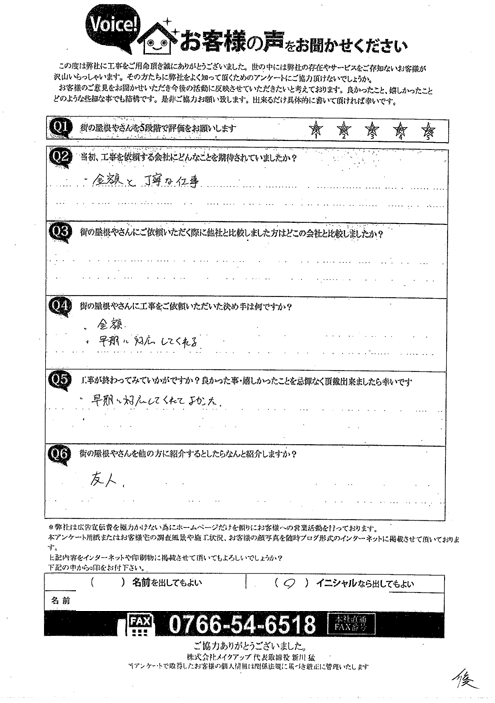 Voice!
お客様の声をお聞かせください
この度は弊社に工事をご用命頂き誠にありがとうございました。世の中には弊社の存在やサービスをご存知ないお客様が
沢山いらっしゃいます。その方たちに弊社をよく知って頂くためのアンケートにご協力頂けないでしょうか。
お客様のご意見をお聞かせいただき今後の活動に反映させていただきたいと考えております。良かったこと、嬉しかったこと
どのような些細な事でも結構です。是非ご協力お願い致します。出来るだけ具体的に書いて頂ければ幸いです。
Q1 街の屋根やさんを5段階で評価をお願いします
1 2 3 4 5
Q2 当初、工事を依頼する会社にどんなことを期待されていましたか?
・金額と丁寧な仕事
Q3 街の屋根やさんにご依頼いただく際に他社と比較しました方はどこの会社と比較しましたか?
Q4 街の屋根やさんに工事をご依頼いただいた決め手は何ですか?
・金額
・早期に対応してくれる
Q5 工事が終わってみていかがですか?良かった事・嬉しかったことを忌憚なく頂戴出来ましたら幸いです
・早期に対応してくれてよかった
Q6 街の屋根やさんを他の方に紹介するとしたらなんと紹介しますか?
友人、
*弊社は広告宣伝費を極力かけない為にホームページだけを頼りにお客様への営業活動を行っております。
本アンケート用紙またはお客様宅の調査風景や施工状況、お客様の顔写真を随時ブログ形式のインターネットに掲載させて頂いております。
上記内容をインターネットや印刷物に掲載させて頂いてもよろしいでしょうか?
下記の中から○印をお付下さい。
( ) 名前を出してもよい (○) イニシャルなら出してもよい
名前
FAX 0766-54-6518 本社直通 FAX番号
ご協力ありがとうございました。
株式会社メイクアップ 代表取締役 新川 猛
当アンケートで取得したお客様の個人情報は関係法規に基づき厳正に管理いたします